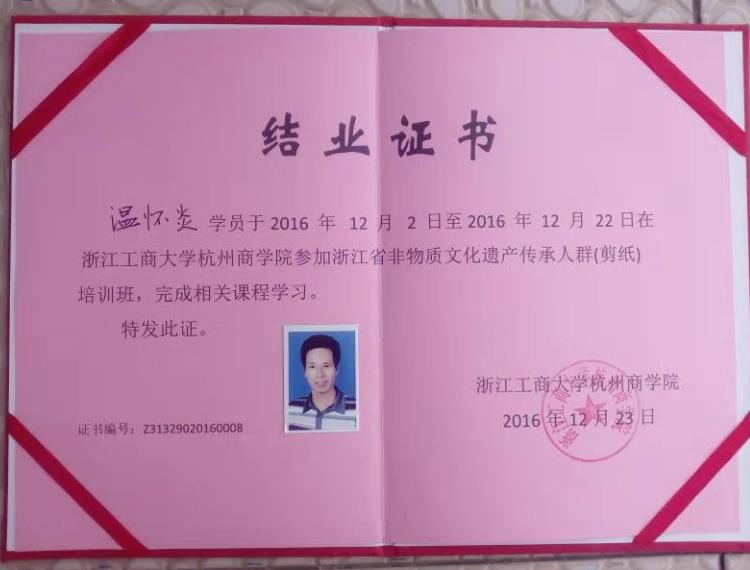 结业证书
温怀炎 学员于2016 年 12 月 2 日至2016 年 12 月 22日在
浙江工商大学杭州商学院参加浙江省非物质文化遗产传承人群(剪纸)
培训班，完成相关课程学习。
特发此证。
浙江工商大学杭州商学院
2016 年 12 月 23 日
证书编号：Z31329020160008
浙江工商大学杭州商学院